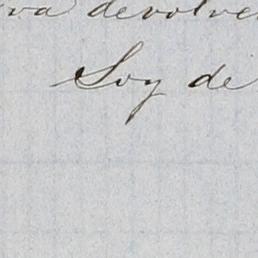 va devolver
Soy de